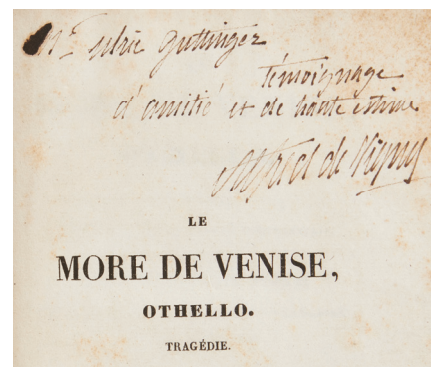 Mr ulric Guttinger
témoignage
d'amitié et de haute estime
Alfred de Vigny
LE
MORE DE VENISE,
OTHELLO.
TRAGÉDIE.